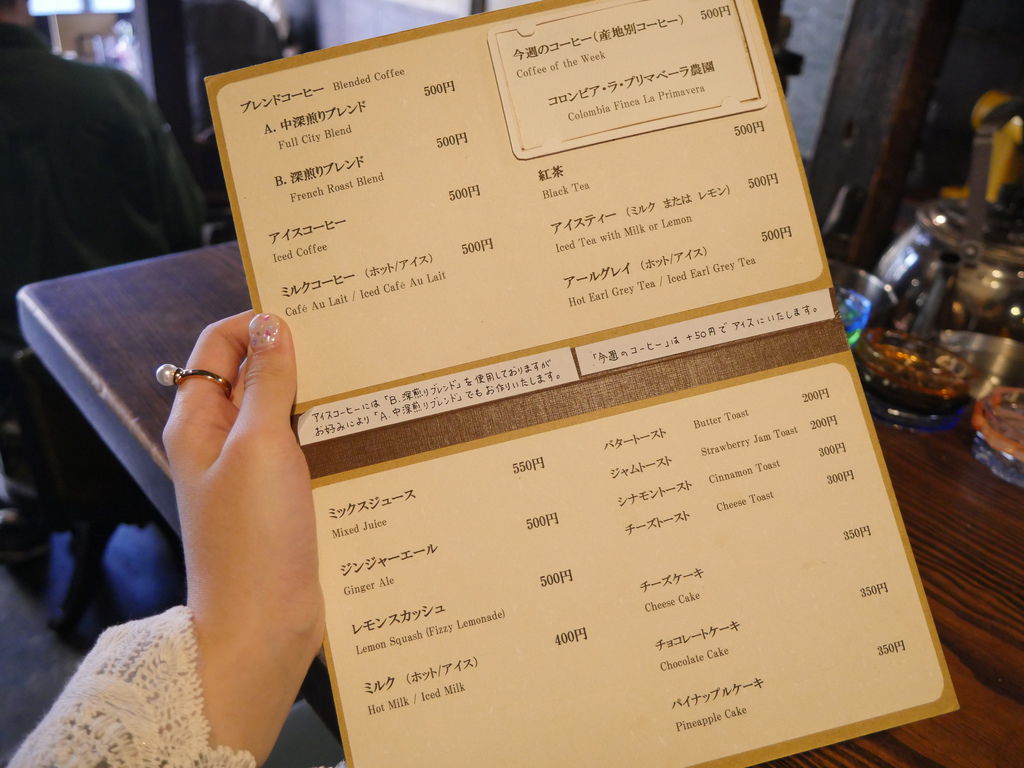 ブレンドコーヒー Blended Coffee
A. 中深煎りブレンド 500円
Full City Blend
B. 深煎りブレンド 500円
French Roast Blend
アイスコーヒー 500円
Iced Coffee
ミルクコーヒー (ホット/アイス) 500円
Café Au Lait / Iced Café Au Lait
今週のコーヒー(産地別コーヒー) 500円
Coffee of the Week
コロンビア・ラ・プリマベーラ農園
Colombia Finca La Primavera
紅茶 500円
Black Tea
アイスティー (ミルク または レモン) 500円
Iced Tea with Milk or Lemon
アールグレイ (ホット/アイス) 500円
Hot Earl Grey Tea / Iced Earl Grey Tea
アイスコーヒーには「B.深煎りブレンド」を使用しておりますが
お好みにより「A.中深煎りブレンド」でもお作りいたします。
「今週のコーヒー」は +50円で アイスにいたします。
ミックスジュース 550円
Mixed Juice
ジンジャーエール 500円
Ginger Ale
レモンスカッシュ 500円
Lemon Squash (Fizzy Lemonade)
ミルク (ホット/アイス) 400円
Hot Milk / Iced Milk
バタートースト Butter Toast 200円
ジャムトースト Strawberry Jam Toast 200円
シナモントースト Cinnamon Toast 300円
チーズトースト Cheese Toast 300円
チーズケーキ 350円
Cheese Cake
チョコレートケーキ 350円
Chocolate Cake
パイナップルケーキ 350円
Pineapple Cake